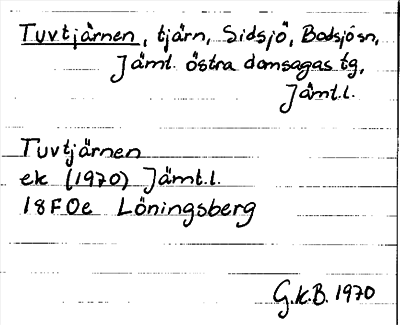 Tuvtjärnen, tjärn, Sidsjö, Bodsjösn,
Jämt. östra domsagas tg,
Jämt.l.
Tuvtjärnen
ek (1970) Jämt.l.
18F0e Löningsberg
G.K.B. 1970